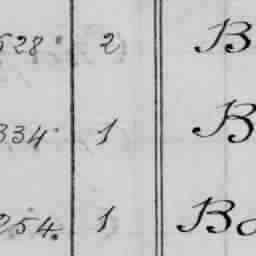 528 2 B
334 1 B
254 1 Bo